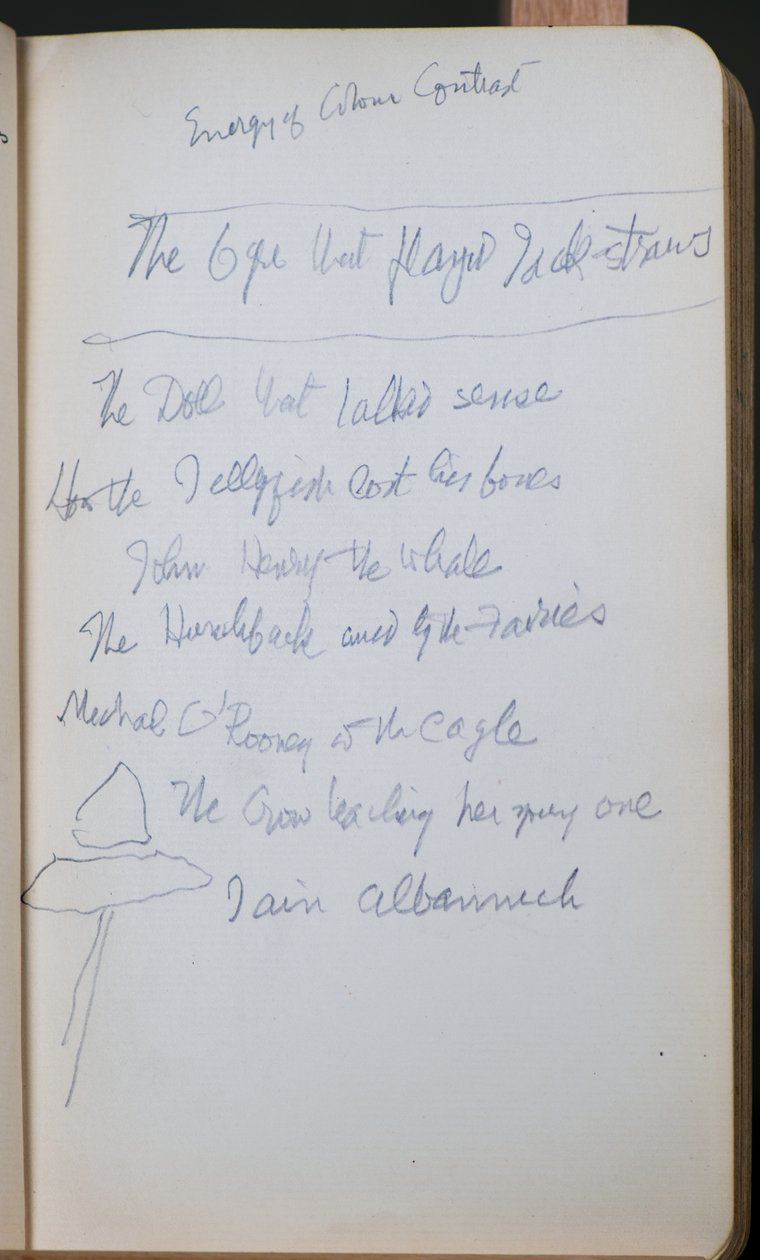 Energy of Colour Contrast
The Ogre that played Jackstraws
The Doll that talked sense
How the Jellyfish lost his bones
John Henry the whale
The Hunchback and the Fairies
Micheal O'Rooney & the eagle
The Crow teaching her young one
Iain Albannich